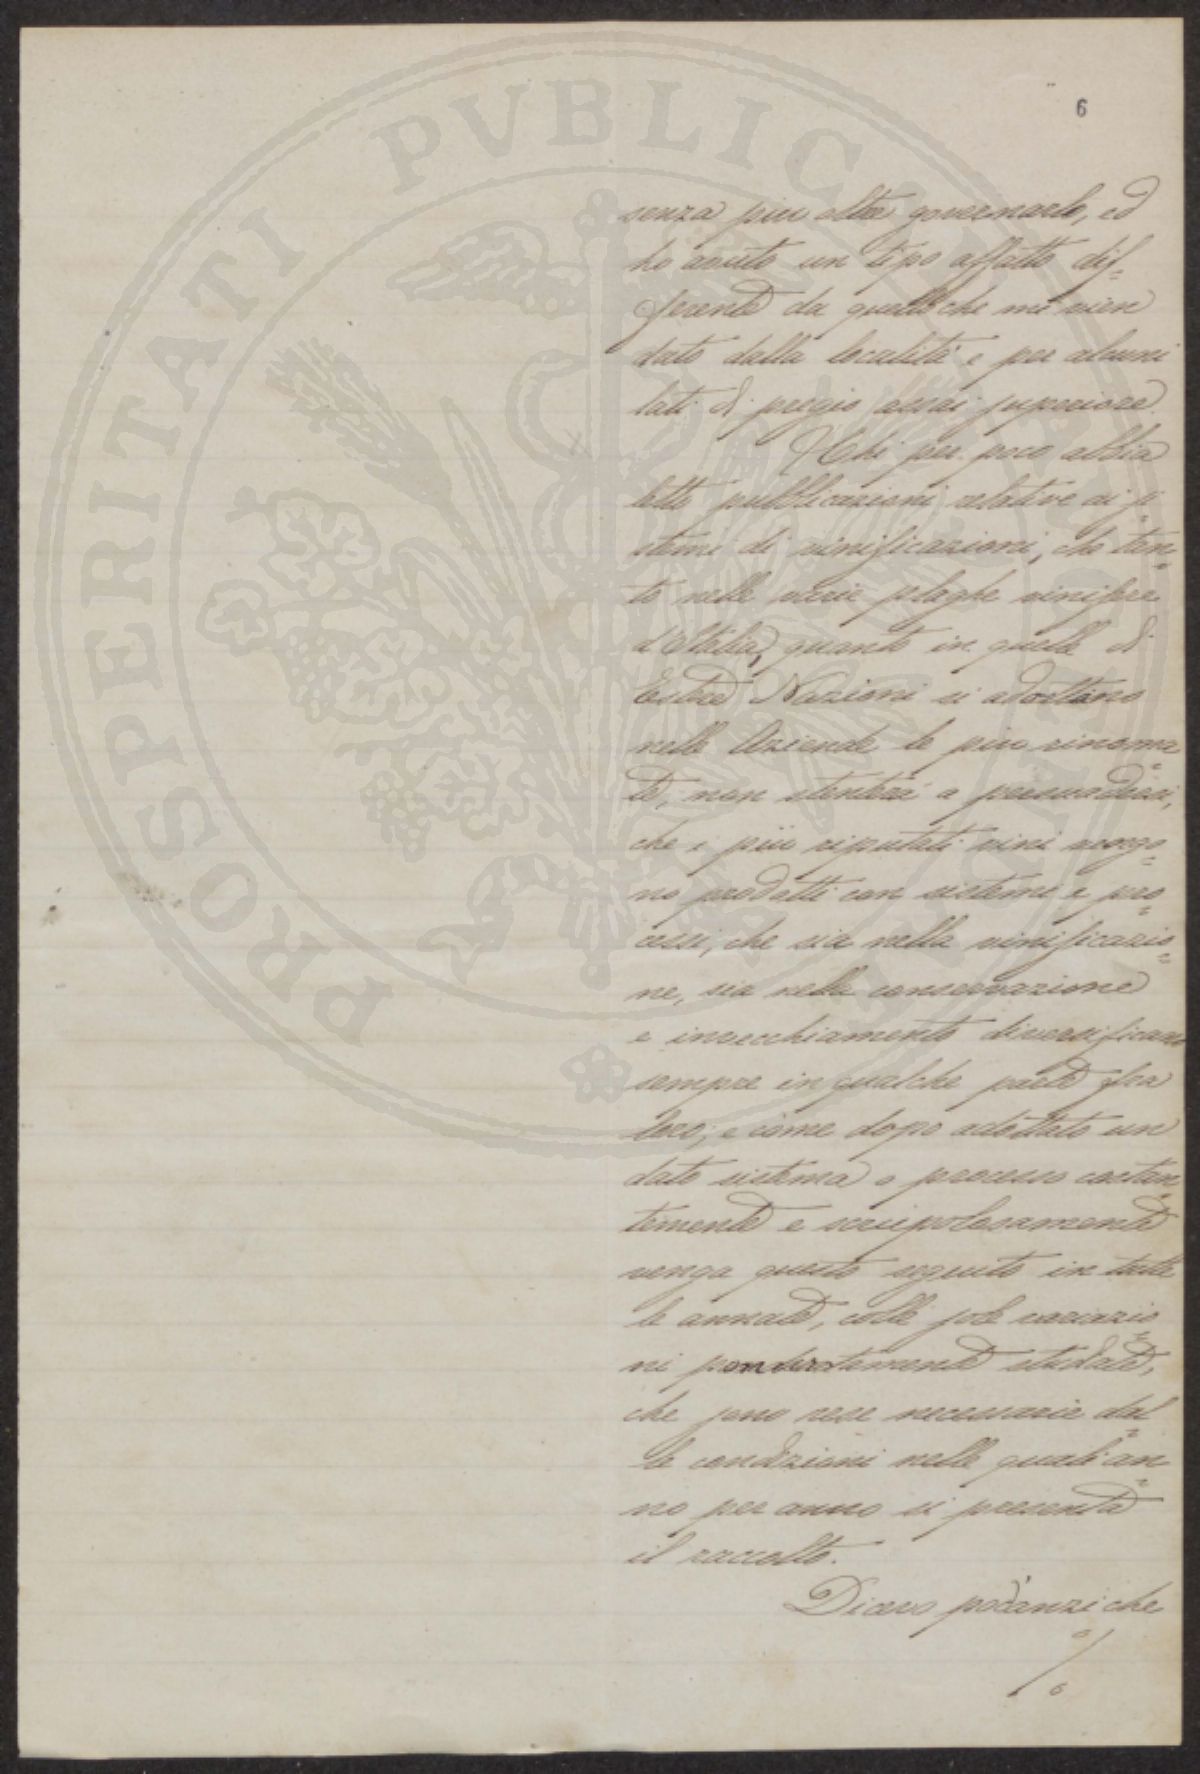 6
senza più altro governarlo, ed
ho avuto un tipo affatto dif=
ferente da quello che mi vien
dato dalla località e per alcuni
lati di pregio assai superiore.
Chi per poco abbia
letto pubblicazioni relative ai si=
stemi di vinificazioni, che tan=
to nelle varie plaghe vinifere
d'Italia, quanto in quelle di
Estere Nazioni si adottano
nelle Aziende le più rinoma=
te, non stenterà a persuadersi,
che i più riputati vini vengo=
no prodotti con sistemi e pro=
cessi, che sia nella vinificazio=
ne, sia nella conservazione
e invecchiamento diversificano
sempre in qualche parte fra
loro; e come dopo adottato un
dato sistema o processo costan=
temente e scrupolosamente
venga questo seguito in tutte
le annate, colle sole variazio=
ni ponderatamente studiate,
che sono rese necessarie dal=
le condizioni nelle quali an=
no per anno si presenta
il raccolto.
Dicevo poc'anzi che
./.
PROSPERITATI PVBLICAE